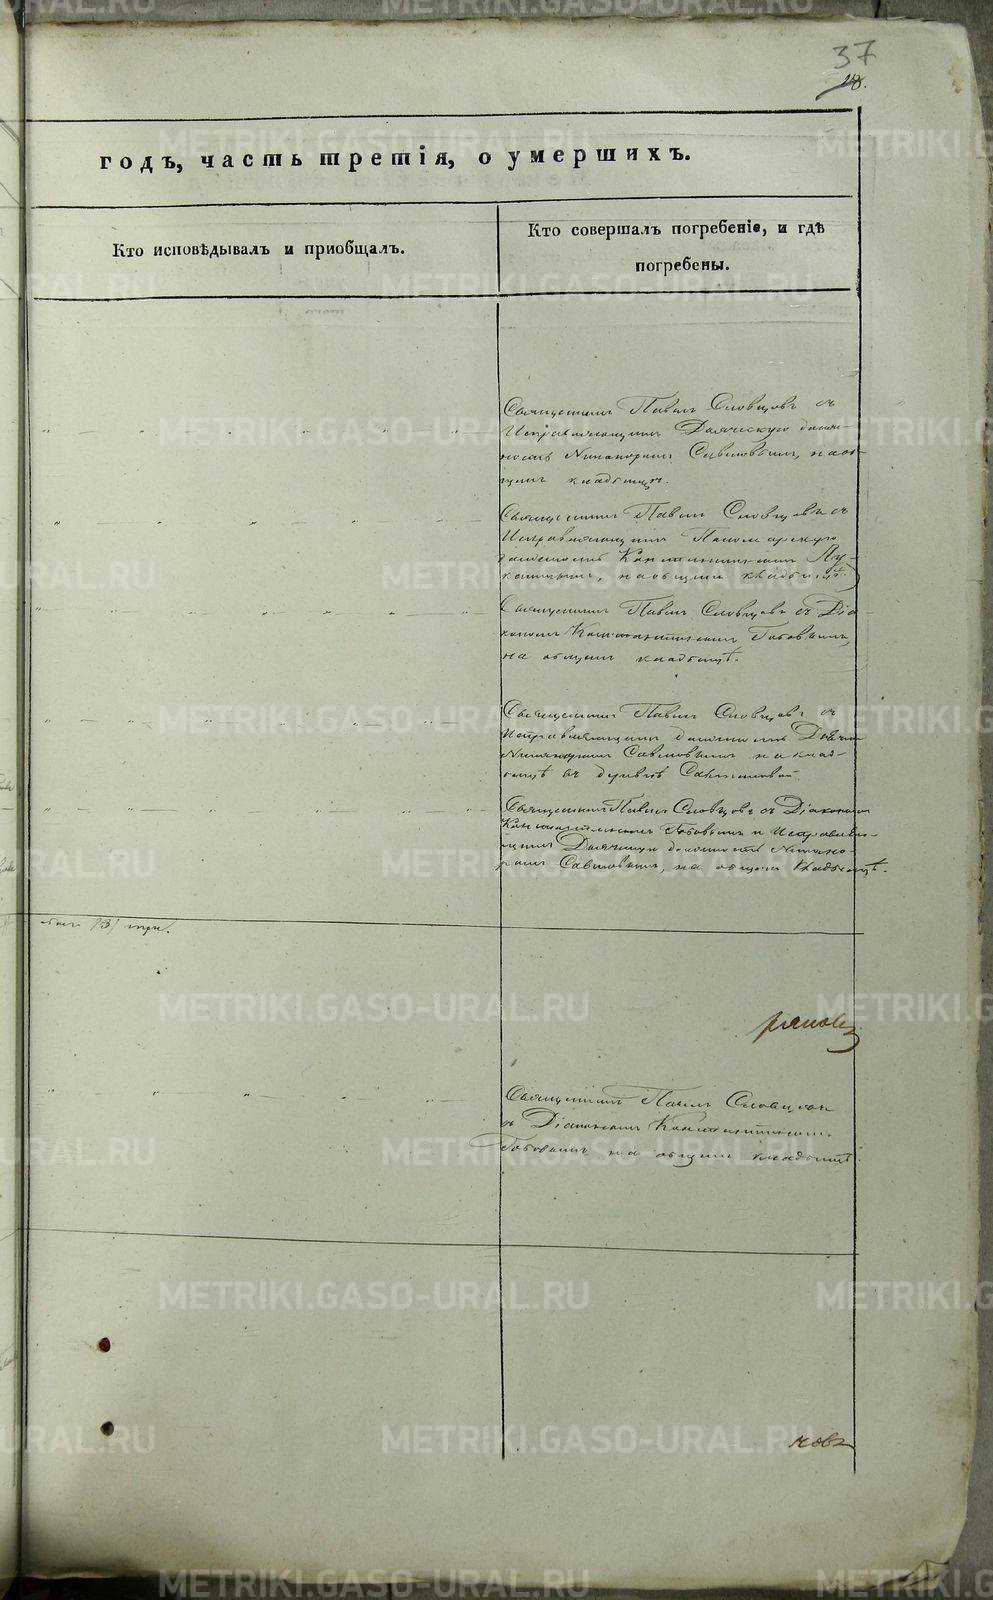 37
годъ, часть третія, о умершихъ.
Кто исповѣдывалъ и приобщалъ.
Кто совершалъ погребеніе, и гдѣ
погребены.
Священникъ Павелъ Словцовъ съ
Исправляющимъ Дьяческую долж-
ность Никаноромъ на об-
щемъ кладбищѣ.
Священникъ Павелъ Словцовъ съ
Исправляющимъ Пономарскую
должность Константиномъ
на общемъ кладбищѣ.
Священникъ Павелъ Словцовъ съ Діа-
кономъ Константиномъ
на общемъ кладбищѣ.
Священникъ Павелъ Словцовъ съ
Исправляющимъ должность Дьячка
Никаноромъ на клад-
бищѣ въ деревнѣ
Священникъ Павелъ Словцовъ съ Діакономъ
Константиномъ и Исправляю-
щимъ Дьяческую должность Никано-
ромъ на общемъ кладбищѣ.
(3) три.
Священникъ Павелъ Словцовъ
съ Діакономъ Константиномъ
на общемъ кладбищѣ.
ковъ
METRIKI.GASO-URAL.RU